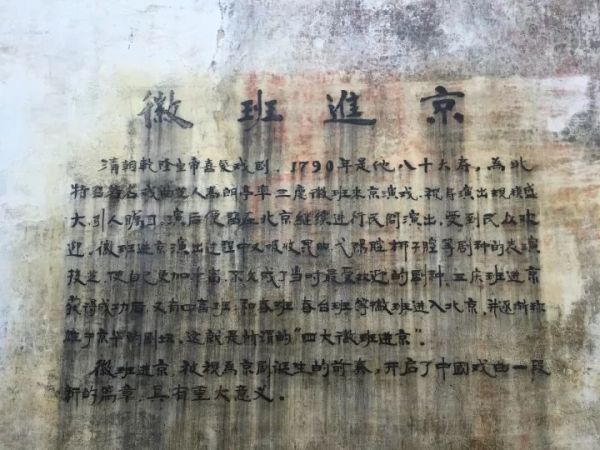 徽班進京
清朝乾隆皇帝喜爱戏剧,1790年是他八十大寿,為此
特召著名戏曲艺人高朗亭率三慶徽班来京演戏,祝寿演出规模盛
大,引人瞩目。演后便留在北京继续进行民间演出,受到民众欢
迎。徽班进京演出过程中又吸收昆曲弋陽腔梆子腔等剧种的表演
技艺,使自己更加丰富,不久成了当时最受欢迎的剧种。三庆班进京
获得成功后,又有四喜班、和春班、春台班等徽班进入北京,并逐渐称
雄于京华的剧坛,这就是所谓的"四大徽班进京"。
徽班进京被视為京剧诞生的前奏,开启了中國戏曲一段
新的篇章,具有重大意义。